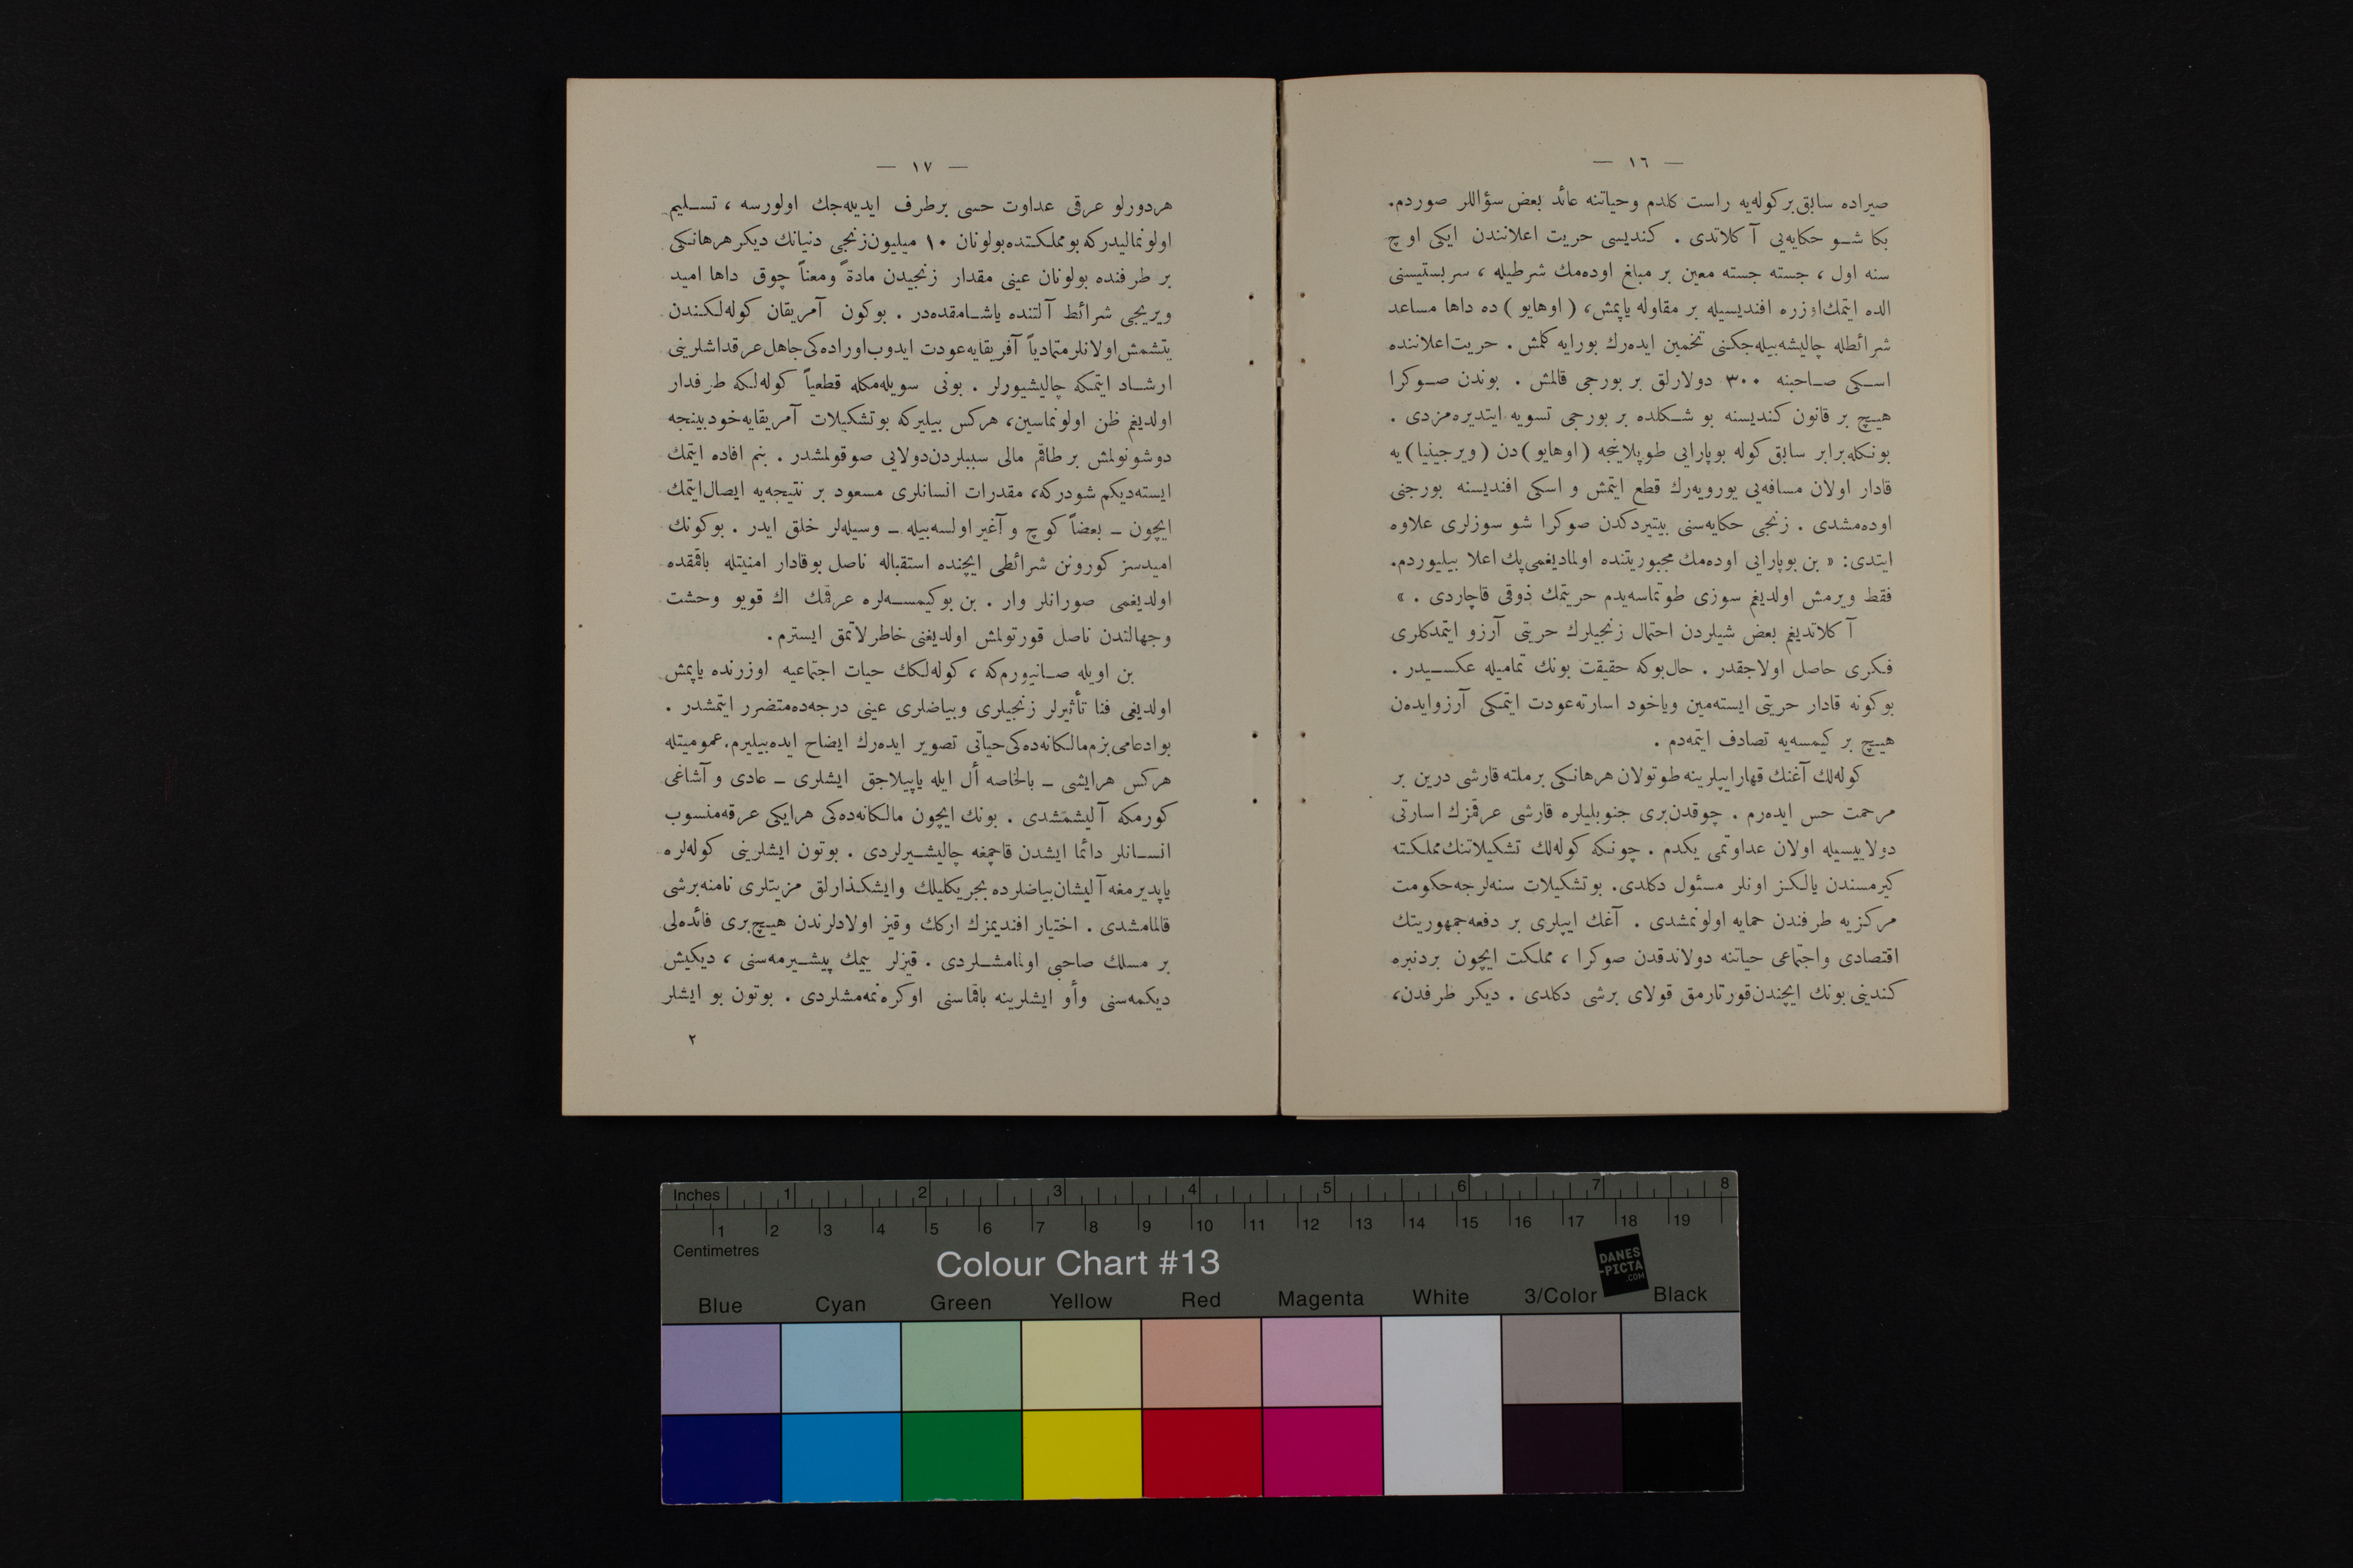 — ١٦ —
صیراده سابق بر کوله‌یه راست کلدم وحیاتنه عائد بعض سؤاللر صوردم.
بکا شـو حکایه‌یی آ کلاتدی . کندیسی حریت اعلانندن ایکی اوچ
سنه اول ، جسته جسته معین بر مبلغ اوده‌مك شرطیله ، سربستیسنی
الده ایتمك اوزره افندیسیله بر مقاوله یاپمش، ( اوهایو ) ده داها مساعد
شرائطله چالیشه‌بیله‌جکنی تخمین ایده‌رك بورایه کلمش . حریت اعلاننده
اسـکی صـاحبنه ٣٠٠ دولارلق بر بورجی قالمش . بوندن صـوکرا
هیـچ بر قانون کندیسنه بو شـکلده بر بورجی تسویه ایتدیره‌مزدی .
بونکله برابر سابق کوله بو پارایی طوپلاینجه (اوهایو) دن (ویرجینیا) یه
قادار اولان مسافه‌یی یورویه‌رك قطع ایتمش و اسکی افندیسنه بورجنی
اوده‌مشدی . زنجی حکایه‌سنی بیتیردکدن صوکرا شو سوزلری علاوه
ایتدی: « بن بو پارایی اوده‌مك مجبوریتنده اولمادیغمی پك اعلا بیلیوردم.
فقط ویرمش اولدیغم سوزی طوتماسه‌یدم حریتمك ذوقی قاچاردی . »
آ کلاتدیغم بعض شیلردن احتمال زنجیلرك حریتی آرزو ایتمدکلری
فـکری حاصل اولاجقدر . حال بوکه حقیقت بونك تمامیله عکسـیدر .
بوکونه قادار حریتی ایسته‌مین ویاخود اسارته عودت ایتمکی آرزو ایده‌ن
هیـچ بر کیمسه‌یه تصادف ایتمه‌دم .
کوله‌لك آغنك قهار ایپلرینه طوتولان هرهانـکی بر ملته قارشی درین بر
مرحمت حس ایده‌رم . چوقدن‌بری جنوبلیلره قارشی عرقمزك اسارتی
دولاییسیله اولان عداوتمی یکدم . چونـکه کوله‌لك تشکیلاتنك مملـکته
کیرمسندن یالـکز اونلر مسئول دکلدی. بو تشکیلات سنه‌لرجه حکومت
مرکزیه طرفندن حمایه اولونمشدی . آغك ایپلری بر دفعه جمهوریتك
اقتصادی واجتماعی حیاتنه دولاندقدن صوکرا ، مملکت ایچون بردنبره
کندینی بونك ایچندن قورتارمق قولای برشی دکلدی . دیکر طرفدن،
— ١٧ —
هردورلو عرقی عداوت حسی برطرف ایدیله‌جك اولورسه ، تسـلیم
اولونمالیدرکه بو مملکتده بولونان ١٠ میلیون زنجی دنیانك دیکر هرهانـکی
بر طرفنده بولونان عینی مقدار زنجیدن مادةً ومعناً چوق داها امید
ویریجی شرائط آلتنده یاشـامقده‌در . بوکون آمریقان کوله‌لـکندن
یتشمش اولانلر متمادیاً آفریقایه عودت ایدوب اوراده‌کی جاهل عرقداشلرینی
ارشـاد ایتمـکه چالیشیورلر . بونی سویله‌مکله قطعیاً کوله‌لـکه طرفدار
اولدیغم ظن اولونماسین، هرکس بیلیرکه بو تشکیلات آمریقایه خودبینجه
دوشونولمش بر طاقم مالی سببلردن دولایی صوقولمشدر . بنم افاده ایتمك
ایسته‌دیکم شودرکه، مقدرات انسانلری مسعود بر نتیجه‌یه ایصال ایتمك
ایچون – بعضاً کوچ و آغیر اولسه‌بیله – وسیله‌لر خلق ایدر . بوکونك
امیدسز کورونن شرائطی ایچنده استقباله ناصل بو قادار امنیتله باقمقده
اولدیغمی صورانلر وار . بن بو کیمسـه‌لره عرقمك اك قویو وحشت
وجهالتدن ناصل قورتولمش اولدیغنی خاطرلاتمق ایسترم .
بن اویله صـانیورم‌که ، کوله‌لـكك حیات اجتماعیه اوزرنده یاپمش
اولدیغی فنا تأثیرلر زنجیلری وبیاضلری عینی درجه‌ده متضرر ایتمشدر .
بو ادعامی بزم مالـکانه‌ده‌کی حیاتی تصویر ایده‌رك ایضاح ایده‌بیلیرم. عمومیتله
هرکس هرایشی – بالخاصه أل ایله یاپیلاجق ایشلری – عادی و آشاغی
کورمکه آلیشمشدی . بونك ایچون مالـکانه‌ده‌کی هرایکی عرقه منسوب
انسـانلر دائما ایشدن قاچمغه چالیشـیرلردی . بوتون ایشلرینی کوله‌لره
یاپدیرمغه آلیشان بیاضلرده بجریکلیلك وایشکـذارلق مزیتلری نامنه برشی
قالمامشدی . اختیار افندیمزك ارکك وقیز اولادلرندن هیـچ بری فائده‌لی
بر مسلك صاحبی اولمامشـلردی . قیزلر یيمك پیشـیرمه‌سنی ، دیکیش
دیکمه‌سنی وأو ایشلرینه باقماسنی اوکره‌نمه‌مشلردی . بوتون بو ایشلر
٢
Inches 1 2 3 4 5 6 7 8
1 2 3 4 5 6 7 8 9 10 11 12 13 14 15 16 17 18 19
Centimetres
Colour Chart #13
DANES
-PICTA
.COM
Blue Cyan Green Yellow Red Magenta White 3/Color Black